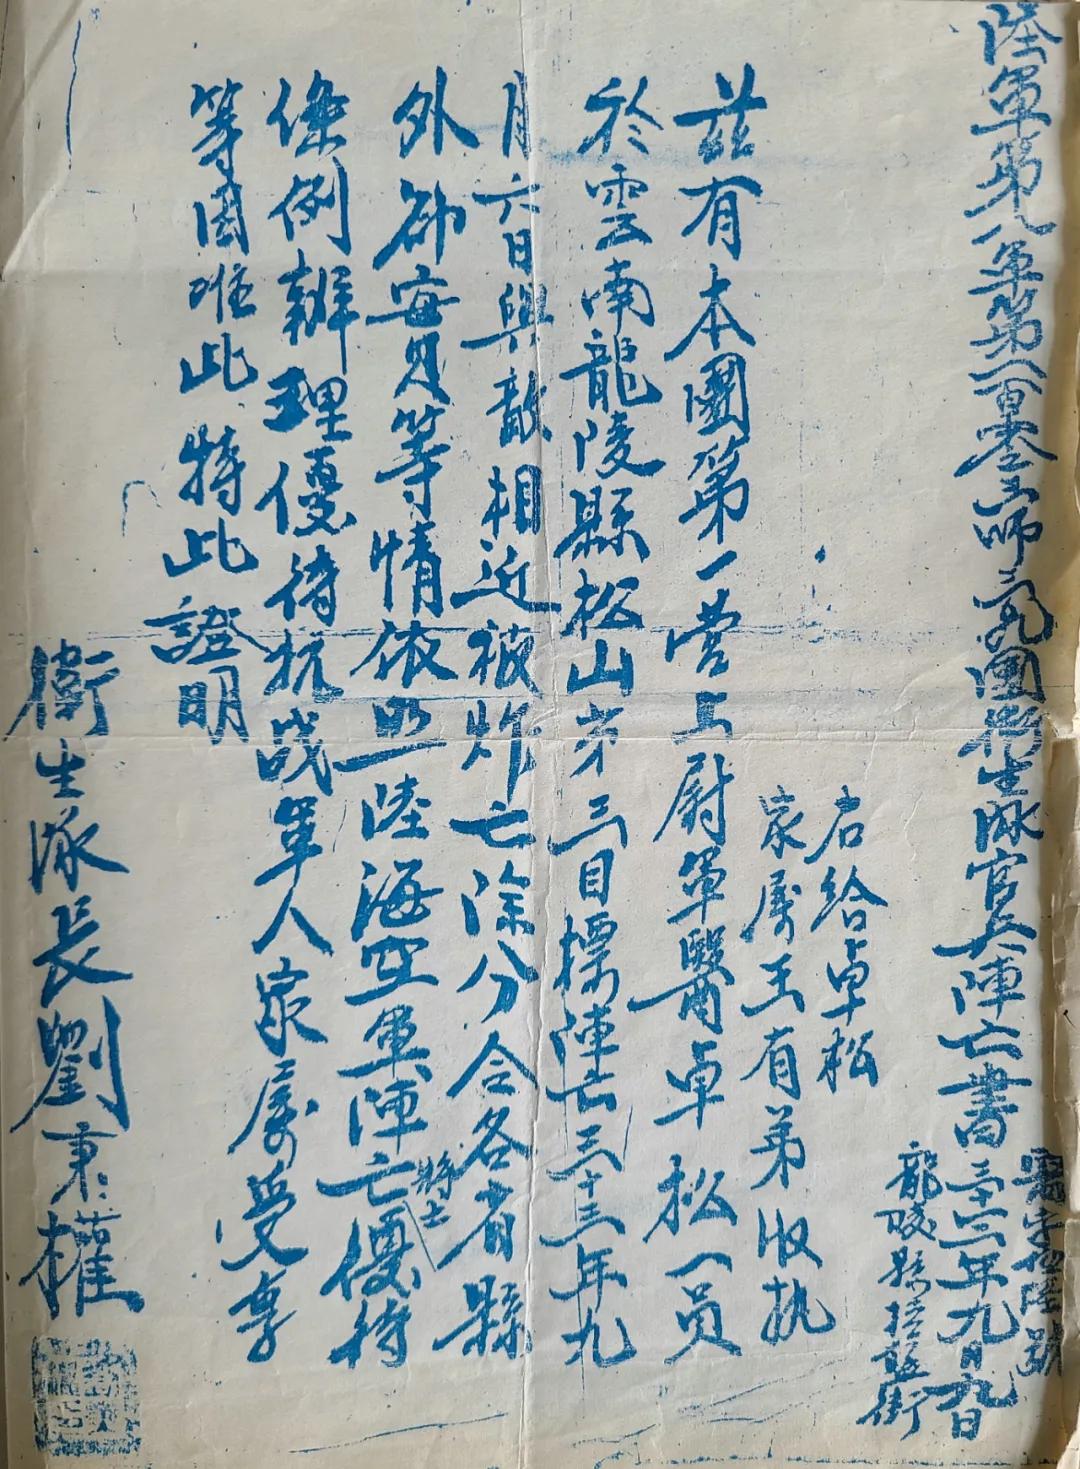 陸軍第八軍第一百零三師三〇九團衛生隊官兵陣亡書三十三年九月九日
龍陵縣街
右給卓松
家屬王有弟收執
茲有本團第一營上尉軍醫卓松一員
於雲南龍陵縣松山第三目標陣亡三十三年九
月六日與敵相近被炸亡除分令各省縣
外部安月等情依照陸海空軍陣亡將士優待
條例辦理優待抗战軍人家屬受享
等因唯此特此證明
衛生隊長劉秉權